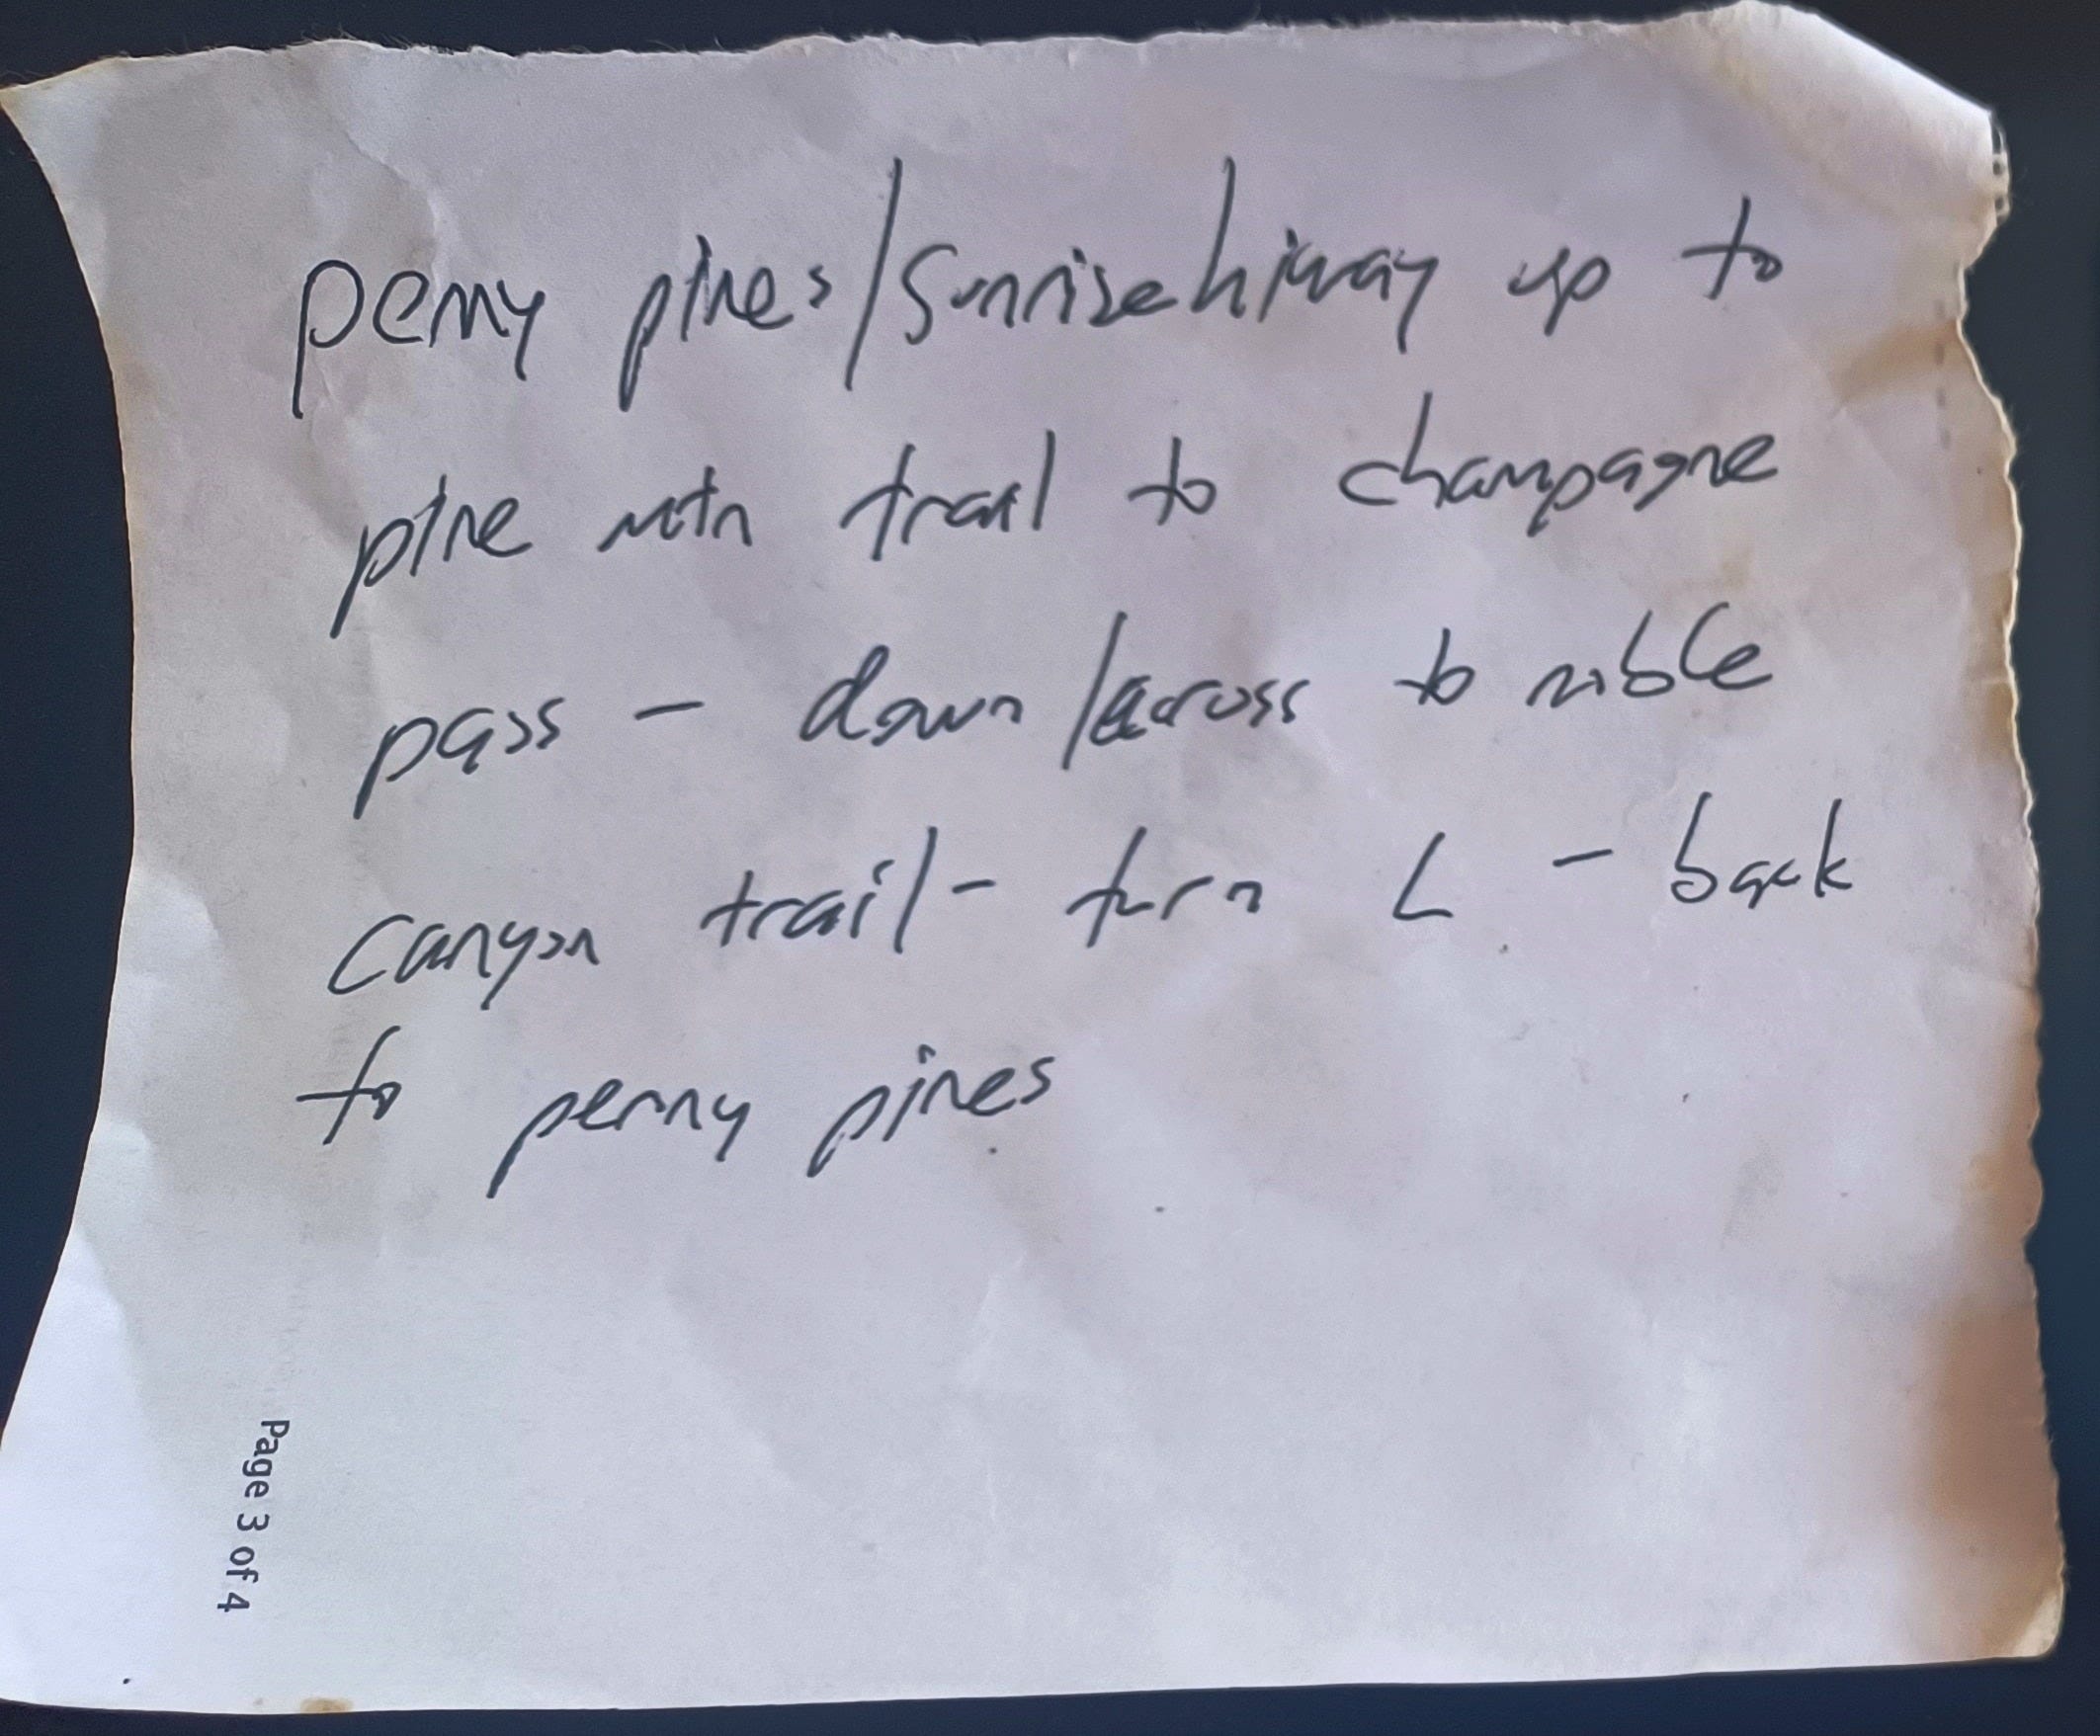 penny pines/Sunrise hiway up to
pine mtn trail to champagne
pass - down/across to noble
canyon trail - turn L - back
to penny pines
Page 3 of 4